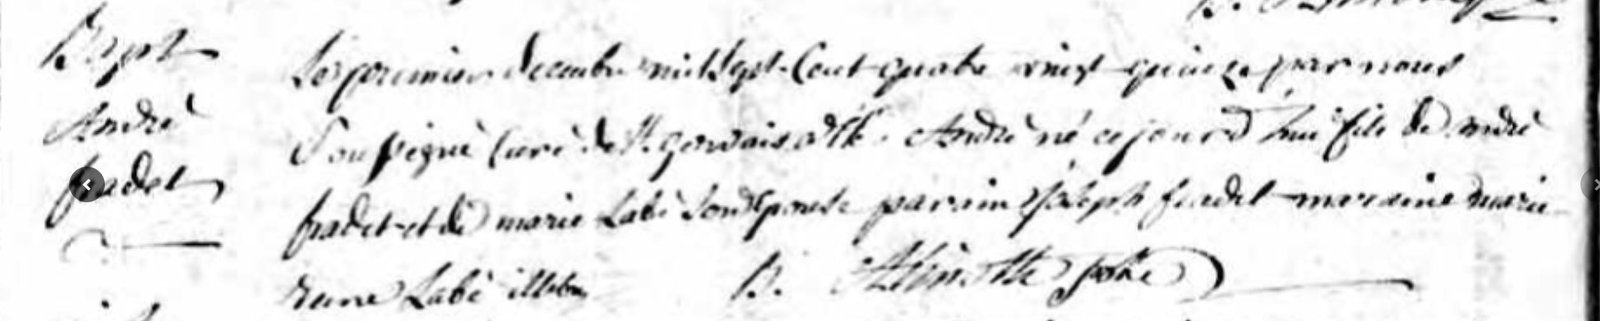 Bapt
André
fradet
Le premier decembre mil Sept Cent quatre vingt quinze par nous
Soussigné Curé de St. Gervais &c. André né ce jourd'hui fils de André
fradet et de marie Labé Son Epouse parain Joseph fradet maraine marie
Labé illetrés B.